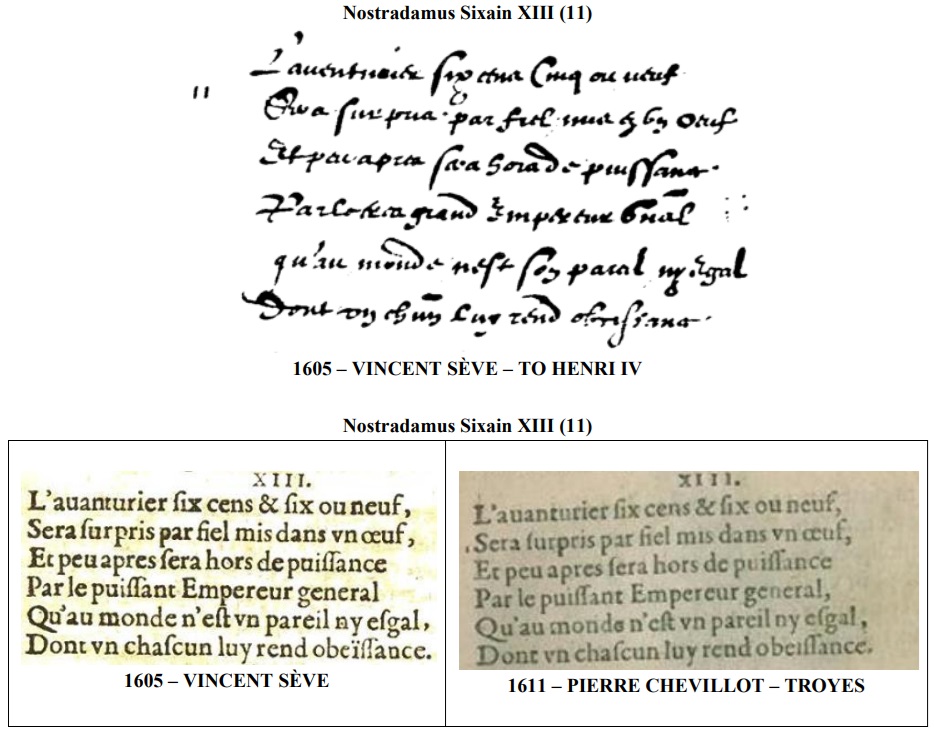 Nostradamus Sixain XIII (11)
L'auenturier six cens Cinq ou neuf
11
Sera surpris par fiel mis
Et peu apres sera hors de puissance
Par le tres grand Empereur
qu'au monde nest son pareil ny Egal
Dont vn Luy rend
1605 – VINCENT SÈVE – TO HENRI IV
Nostradamus Sixain XIII (11)
XIII.
L'auanturier ſix cens & ſix ou neuf,
Sera ſurpris par fiel mis dans vn œuf,
Et peu apres ſera hors de puiſſance
Par le puiſſant Empereur general
Qu'au monde n'eſt vn pareil ny eſgal,
Dont vn chaſcun luy rend obeïſſance.
1605 – VINCENT SÈVE
XIII.
L'auanturier ſix cens & ſix ou neuf,
Sera ſurpris par fiel mis dans vn œuf,
Et peu apres ſera hors de puiſſance
Par le puiſſant Empereur general,
Qu'au monde n'eſt vn pareil ny eſgal,
Dont vn chaſcun luy rend obeiſſance.
1611 – PIERRE CHEVILLOT – TROYES